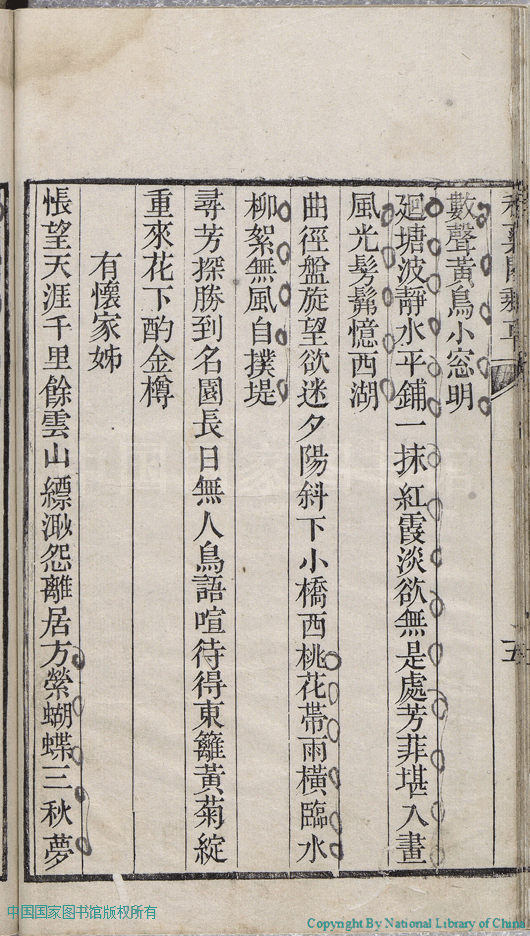 五
數聲黃鳥小窓明
廻塘波靜水平鋪一抹紅霞淡欲無是處芳菲堪入畫
風光髣髴憶西湖
曲徑盤旋望欲迷夕陽斜下小橋西桃花帶雨橫臨水
柳絮無風自撲堤
尋芳探勝到名園長日無人鳥語喧待得東籬黃菊綻
重來花下酌金樽
有懷家姊
悵望天涯千里餘雲山縹渺怨離居方縈蝴蝶三秋夢
中国国家图书馆版权所有
Copyright By National Library of China